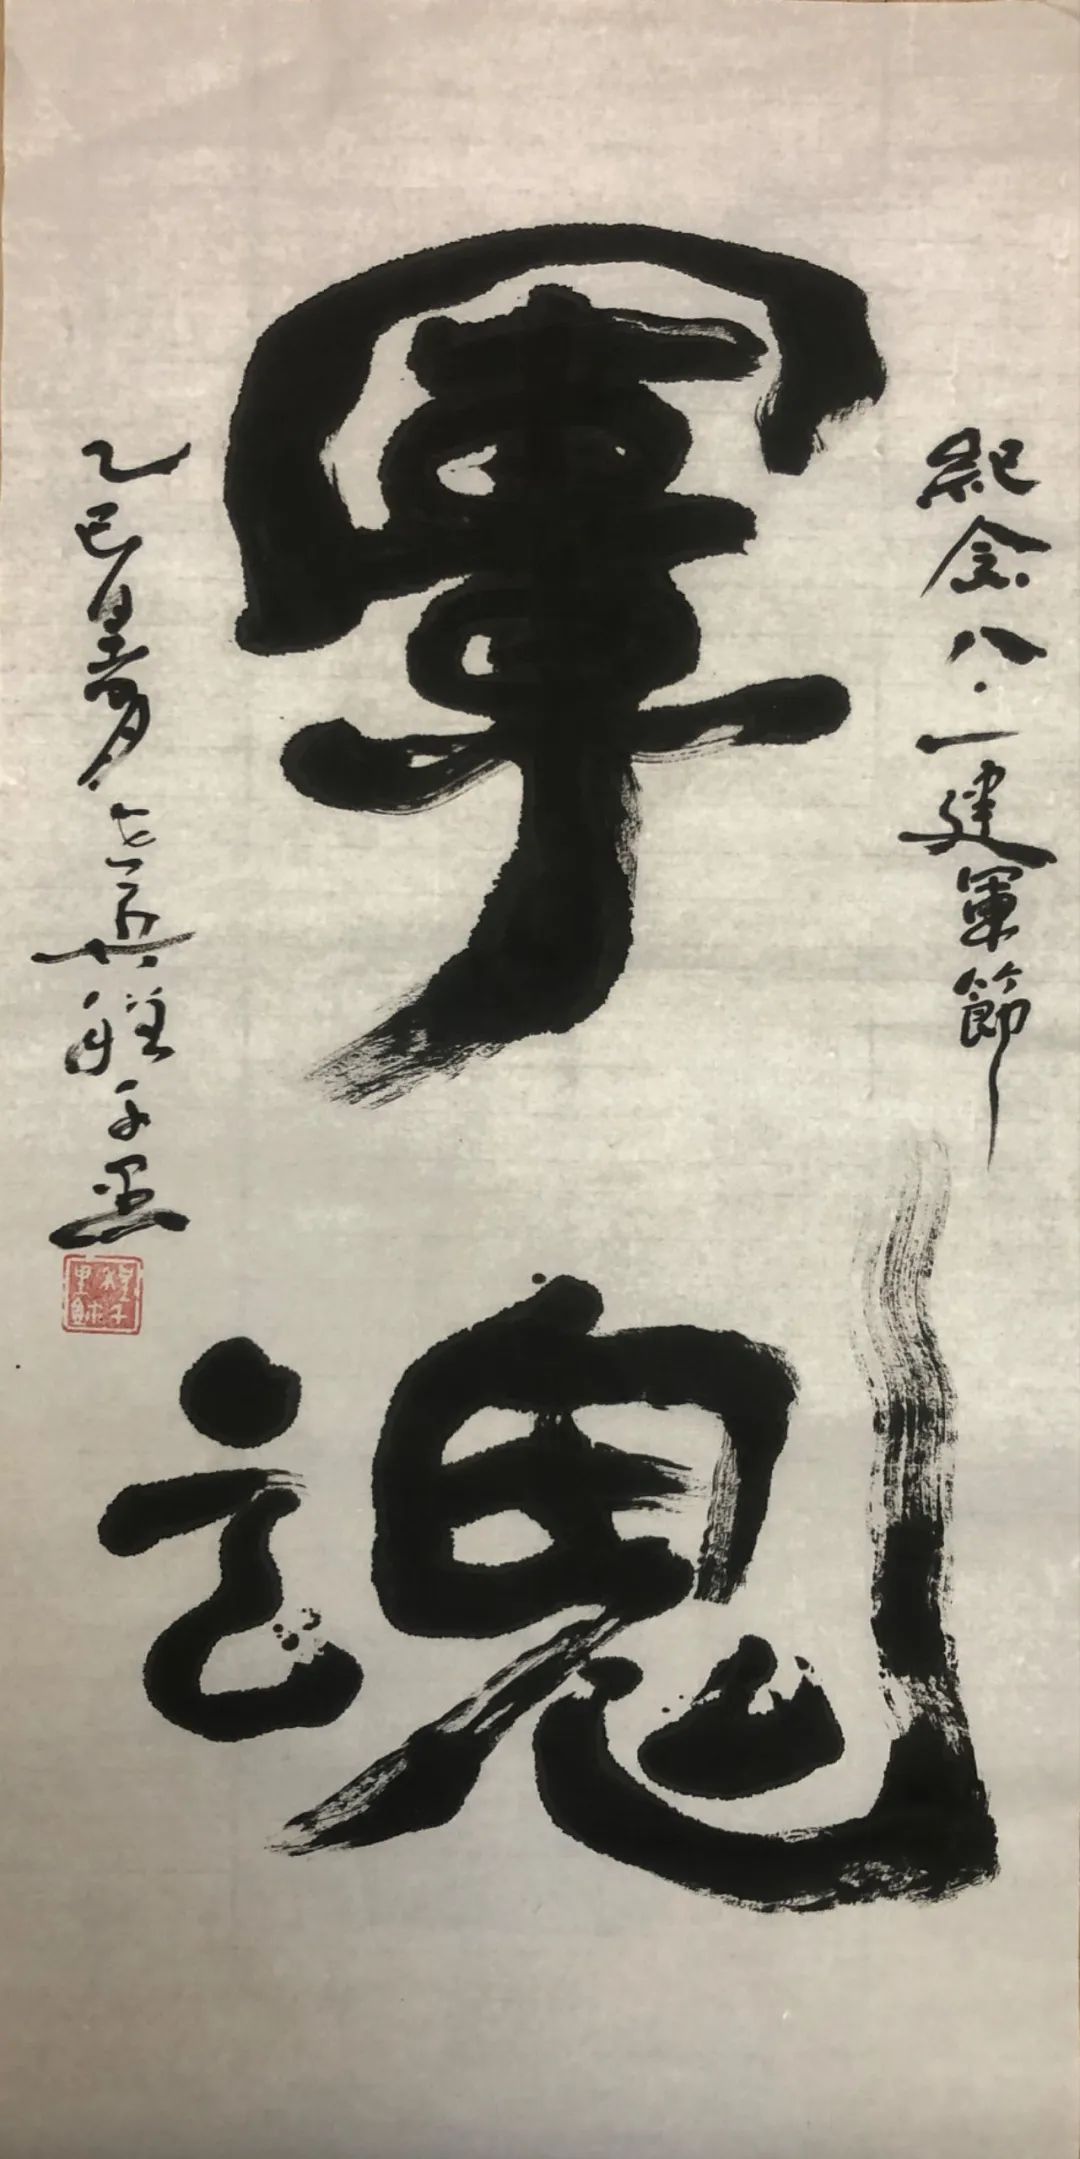 紀念八·一建軍節
軍魂
乙巳夏月兵程子墨